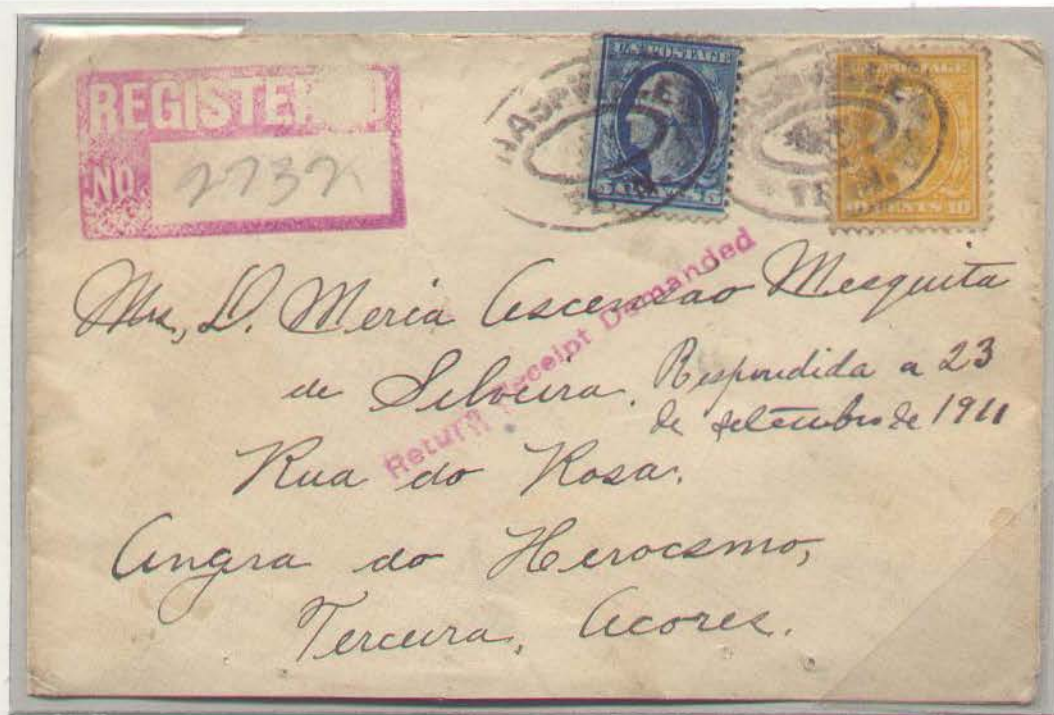 REGISTERED
NO. 2732
NASHVILLE
TENN.
U.S. POSTAGE
NASHVILLE
TENN.
POSTAGE
10 CENTS 10
Return Receipt Demanded
Mrs, D. Meria Ascensao Mesquita
de Silveira.
Respondida a 23
de setembro de 1911
Rua do Rosa.
Angra do Herocsmo,
Terceira, Acores.